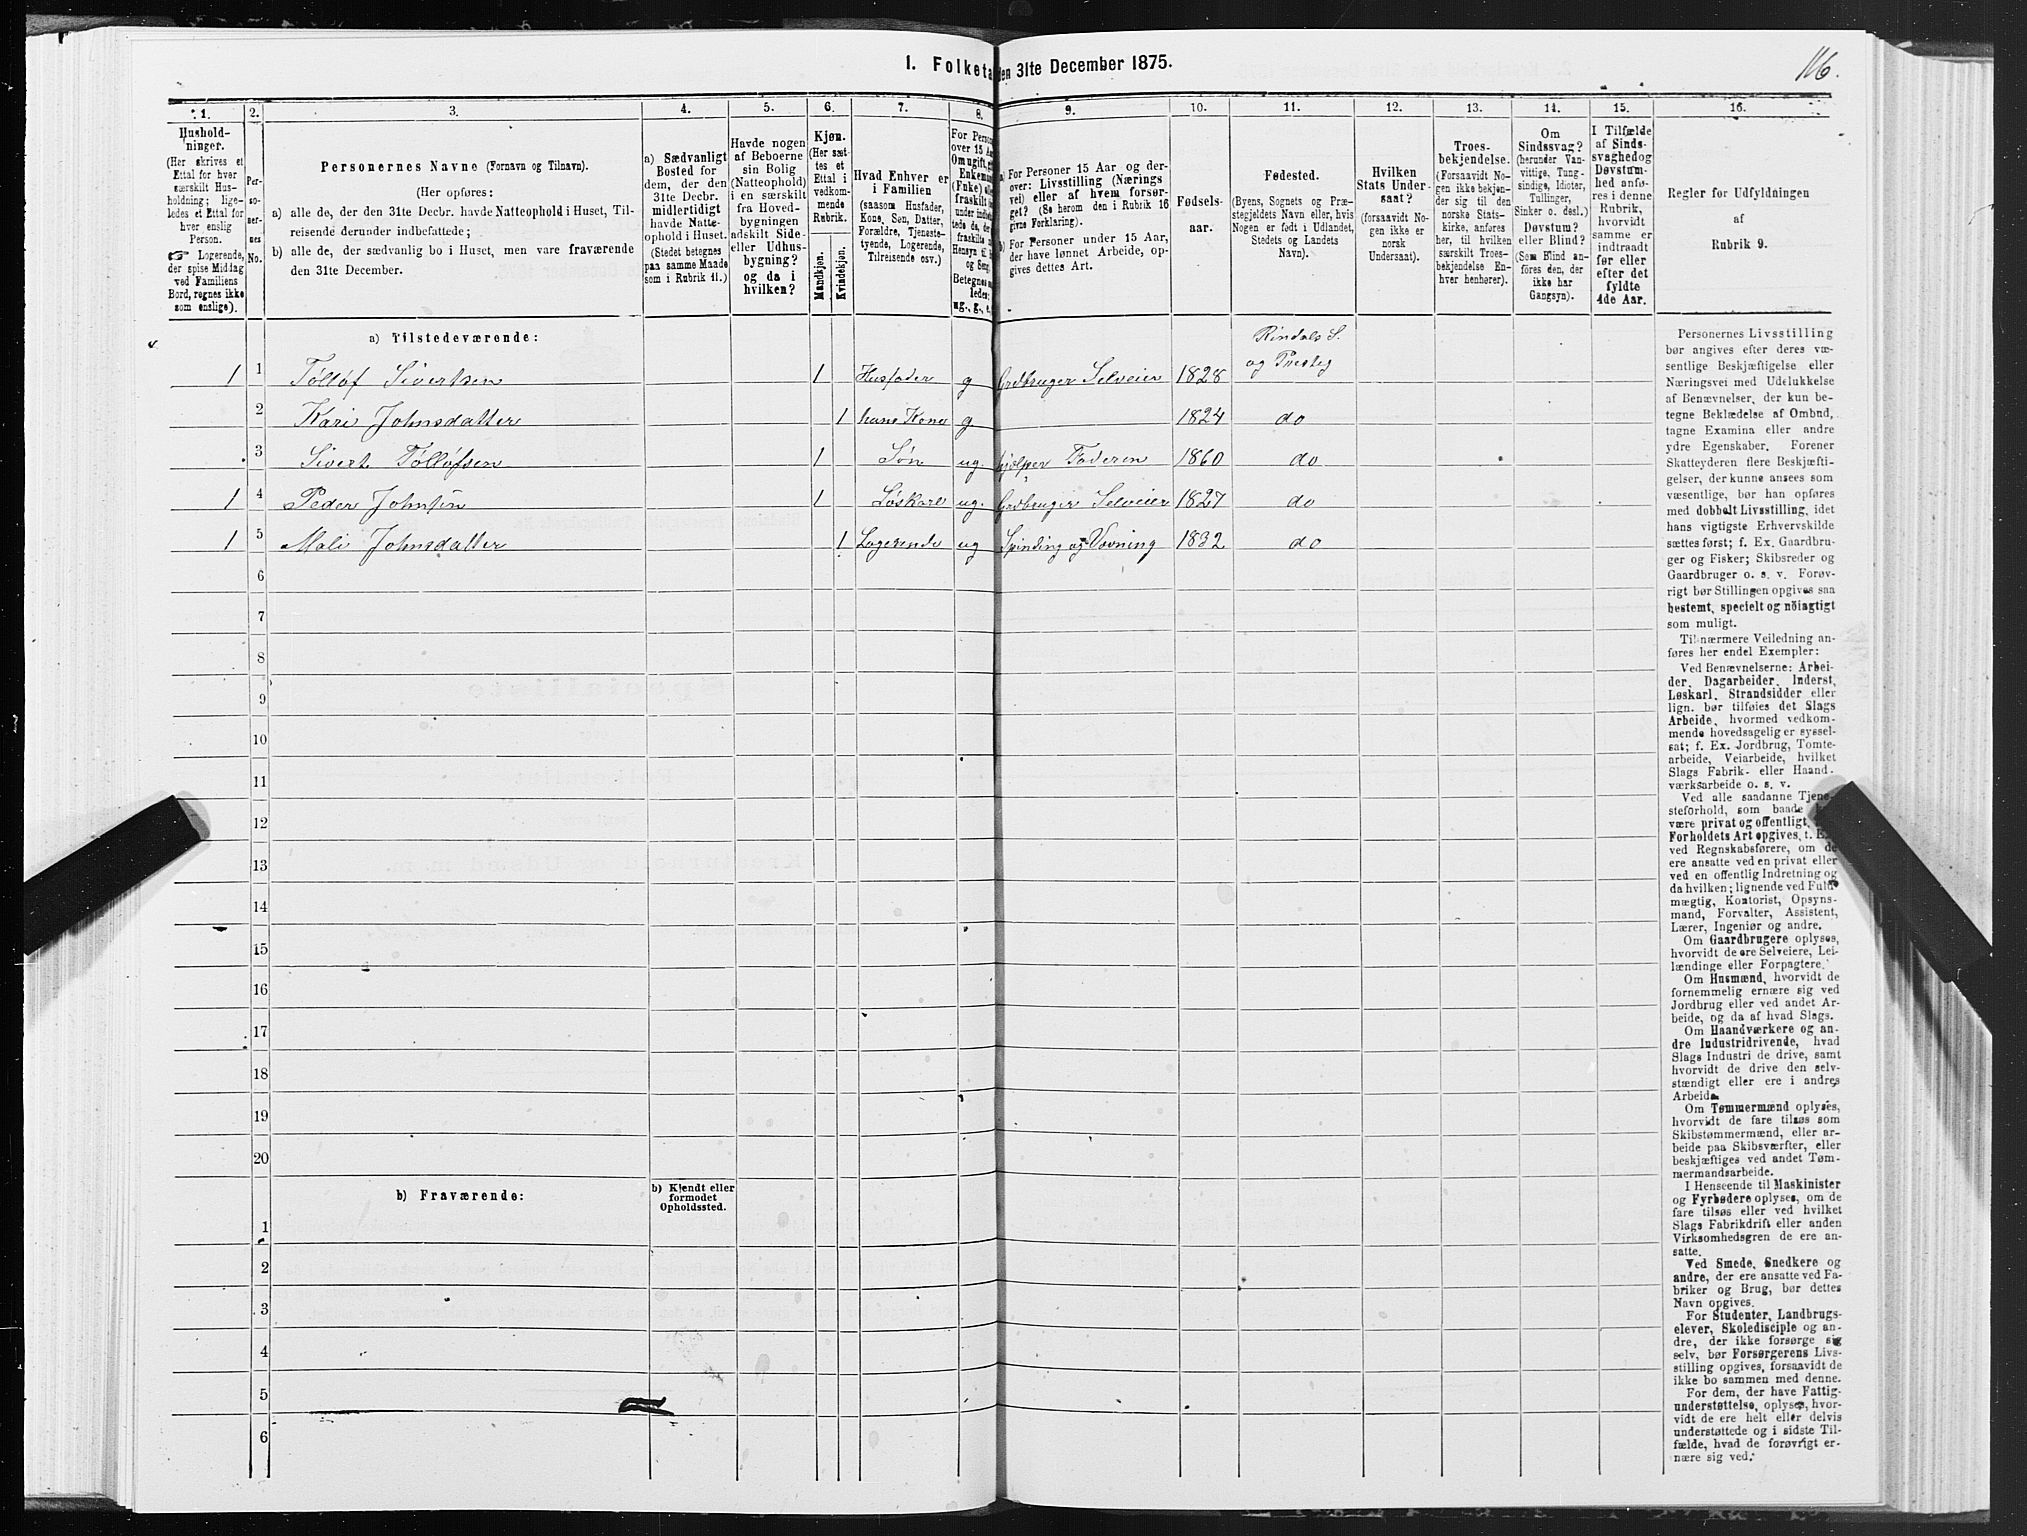 116.
1. Folketa den 31te December 1875.
1. 2. 3. 4. 5. 6. 7. 8. 9. 10. 11. 12. 13. 14. 15. 16.
Hushold-
ninger.
(Her skrives et
Ettal for hver
særskilt Hus-
holdning; lige-
ledes et Ettal for
hver enslig
Person.
☞ Logerende,
der spise Middag
ved Familiens
Bord, regnes ikke
som enslige).
Per-
so-
ner-
nes
No.
Personernes Navne (Fornavn og Tilnavn).
(Her opføres:
a) alle de, der den 31te Decbr. havde Natteophold i Huset, Til-
reisende derunder indbefattede;
b) alle de, der sædvanlig bo i Huset, men vare fraværende
den 31te December.
a) Sædvanligt
Bosted for
dem, der den
31te Decbr.
midlertidigt
havde Natte-
ophold i Huset.
(Stedet betegnes
paa samme Maade
som i Rubrik 11.)
Havde nogen
af Beboerne
sin Bolig
(Natteophold)
i en særskilt
fra Hoved-
bygningen
adskilt Side-
eller Udhus-
bygning?
og da i
hvilken?
Kjøn.
(Her sæt-
tes et
Ettal i
vedkom-
mende
Rubrik.
Mandkjøn.
Kvindekjøn.
Hvad Enhver er
i Familien
(saasom Husfader,
Kone, Søn, Datter,
Forældre, Tjeneste-
tyende, Logerende,
Tilreisende osv.)
For Person
over 15 Aa
Om ugift, g
Enkeman
(Enke) el
fraskilt
under indb
tede de, de
fraskilte
Hensyn ti
og Seng
Betegnes s
ledes:
ug., g., e.
a) For Personer 15 Aar og der-
over: Livsstilling (Nærings
vei) eller af hvem forsør-
get? (Se herom den i Rubrik 16
givne Forklaring).
b) For Personer under 15 Aar,
der have lønnet Arbeide, op-
gives dettes Art.
Fødsels-
aar.
Fødested.
(Byens, Sognets og Præ-
stegjeldets Navn eller, hvis
Nogen er født i Udlandet,
Stedets og Landets
Navn).
Hvilken
Stats Under-
saat?
(forsaavidt No-
gen ikke er
norsk
Undersaat).
Troes-
bekjendelse.
(Forsaavidt No-
gen ikke bekjen-
der sig til den
norske Stats-
kirke, anføres
her, til hvilken
særskilt Troes-
bekjendelse En-
hver henhører).
Om
Sindssvag?
(herunder Van-
vittige, Tung-
sindige, Idioter,
Tullinger,
Sinker o. desl.)
Døvstum?
eller Blind?
(Som Blind an-
føres den, der
ikke har
Gangsyn).
I Tilfælde
af Sinds-
svaghed og
Døvstum-
hed anfø-
res i denne
Rubrik,
hvorvidt
samme er
indtraadt
før eller
efter det
fyldte
4de Aar.
Regler for Udfyldningen
af
Rubrik 9.
a) Tilstedeværende:
Rindals S.
og Presteg
1 1 Tølløf Sivertsen 1 Husfader g Grdbruger Selveier 1828
2 Kari Johnsdatter 1 hans Kone g 1824 do
3 Sivert Tølløfsen 1 Søn ug. hjelper Faderen 1860 do
1 4 Peder Johnsen 1 Løskarl ug. Grdbruger Selveier 1827 do
1 5 Mali Johnsdatter 1 Logerende ug Spinding og Vævning 1832 do
6
7
8
9
10
11
12
13
14
15
16
17
18
19
20
b) Fraværende:
b) Kjendt eller
formodet
Opholdssted.
1
2
3
4
5
6
Personernes Livsstilling
bør angives efter deres væ-
sentlige Beskjæftigelse eller
Næringsvei med Udelukkelse
af Benævnelser, der kun be-
tegne Beklædelse af Ombud,
tagne Examina eller andre
ydre Egenskaber. Forener
Skatteyderen flere Beskjæfti-
gelser, der kunne ansees som
væsentlige, bør han opføres
med dobbelt Livsstilling, idet
hans vigtigste Erhvervskilde
sættes først; f. Ex. Gaardbru-
ger og Fisker; Skibsreder og
Gaardbruger o. s. v. Forøv-
rigt bør Stillingen opgives saa
bestemt, specielt og nöiagtigt
som muligt.
Til nærmere Veiledning an-
føres her endel Exempler:
Ved Benævnelserne: Arbei-
der, Dagarbeider, Inderst,
Løskarl, Strandsidder eller
lign. bør tilføies det Slags
Arbeide, hvormed vedkom-
mende hovedsagelig er syssel-
sat; f. Ex. Jordbrug, Tomte-
arbeide, Veiarbeide, hvilket
Slags Fabrik- eller Haand-
værksarbeide o. s. v.
Ved alle saadanne Tjene-
steforhold, som baade
være privat og offentligt,
Forholdets Art opgives, t. E
ved Regnskabsførere, om de
ere ansatte ved en privat eller
ved en offentlig Indretning og
da hvilken; lignende ved Fuld
mægtig, Kontorist, Opsyns-
mand, Forvalter, Assistent,
Lærer, Ingeniør og andre.
Om Gaardbrugere oplyses,
hvorvidt de ere Selveiere, Lei-
lændinge eller Forpagtere.
Om Husmænd, hvorvidt de
fornemmelig ernære sig ved
Jordbrug eller ved andet Ar-
beide, og da af hvad Slags.
Om Haandværkere og an-
dre Industridrivende, hvad
Slags Industri de drive, samt
hvorvidt de drive den selv-
stændigt eller ere i andres
Arbeide.
Om Tømmermænd oplyses,
hvorvidt de fare tilsøs som
Skibstømmermænd, eller ar-
beide paa Skibsværfter, eller
beskjæftiges ved andet Tøm-
mermandsarbeide.
I Henseende til Maskinister
og Fyrbødere oplyses, om de
fare tilsøs eller ved hvilket
Slags Fabrikdrift eller anden
Virksomhedsgren de ere an-
satte.
Ved Smede, Snedkere og
andre, der ere ansatte ved Fa-
briker og Brug, bør dettes
Navn opgives.
For Studenter, Landbrugs-
elever, Skoledisciple og an-
dre, der ikke forsørge sig
selv, bør Forsørgerens Livs-
stilling opgives, forsaavidt de
ikke bo sammen med denne.
For dem, der have Fattig-
understøttelse, oplyses, hvor-
vidt de ere helt eller delvis
understøttede og i sidste Til-
fælde, hvad de forøvrigt er-
nære sig ved.